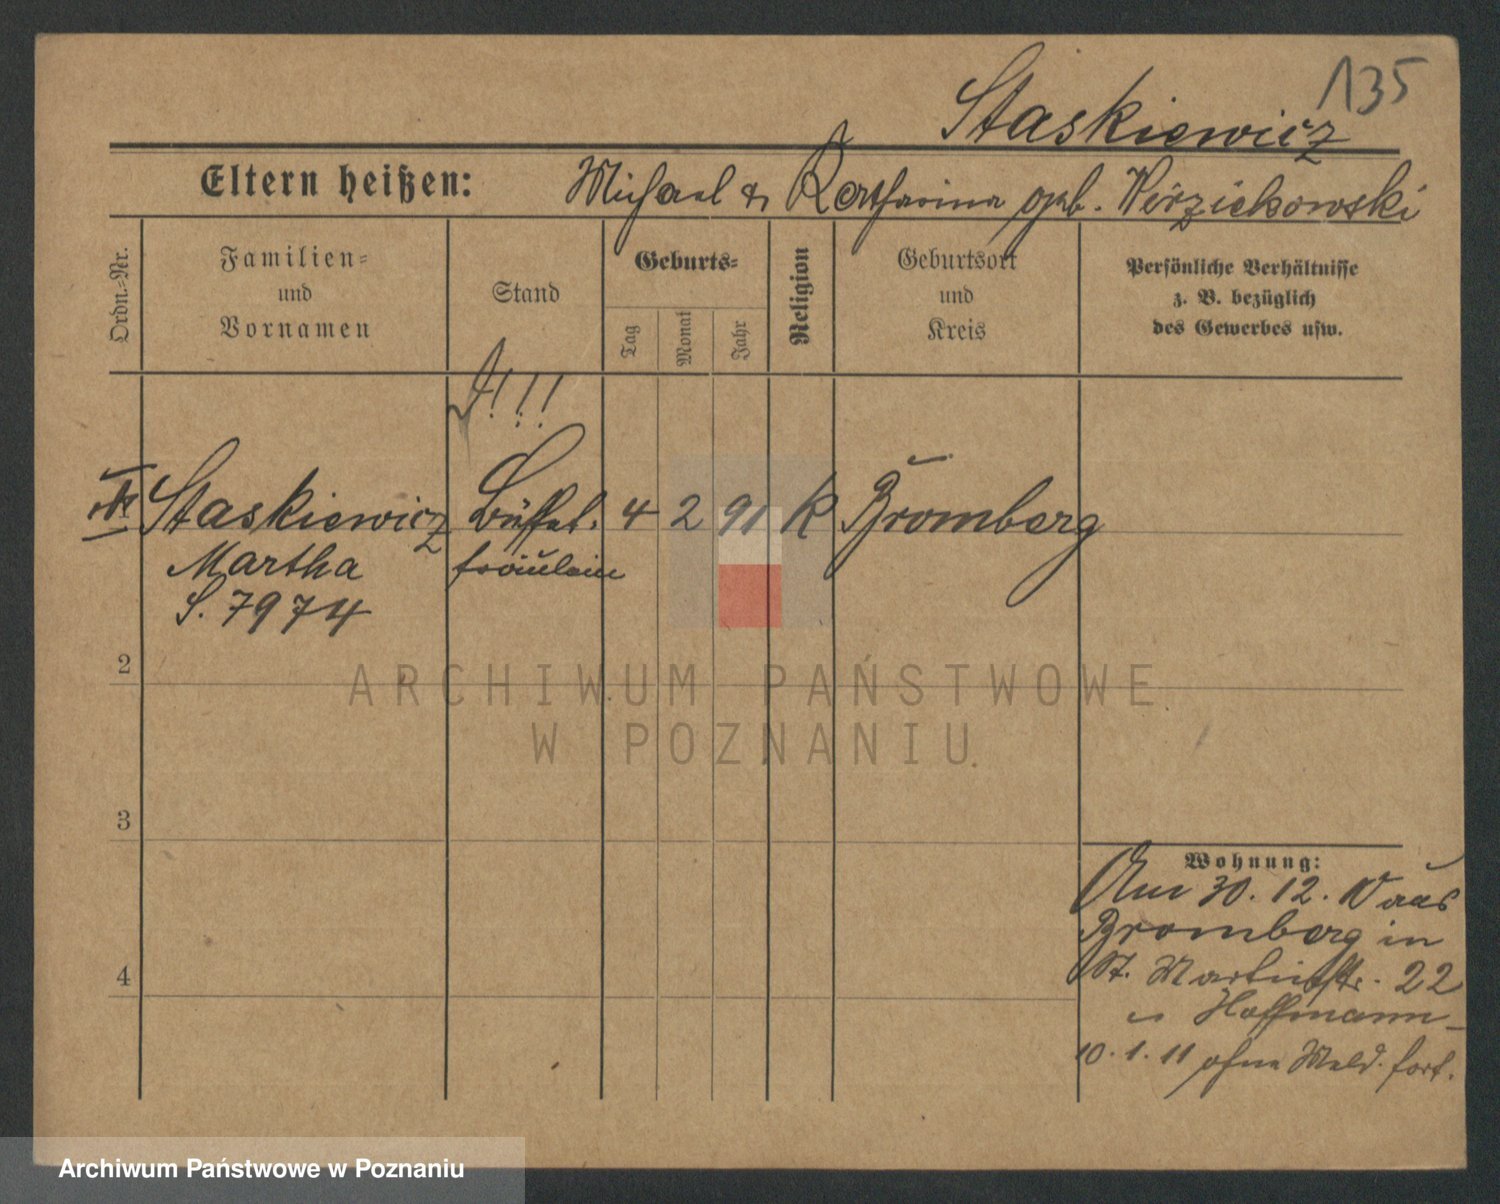 135
Staskiewicz
Eltern heißen: Michael u Katharina geb. Wirzichowski
Ordn.-Nr.
Familien-
und
Vornamen
Stand
Geburts-
Tag
Monat
Jahr
Religion
Geburtsort
und
Kreis
Persönliche Verhältnisse
z. B. bezüglich
des Gewerbes usw.
!!!
Staskiewicz Büffet- 4 2 91 K Bromberg
Martha fräulein
S. 7974
2
3
4
Wohnung:
Am 30. 12. 10 aus
Bromberg in
St. Martinstr. 22
Hoffmann
10. 1. 11 ohne Meld. fort.
ARCHIWUM PAŃSTWOWE
W POZNANIU
Archiwum Państwowe w Poznaniu